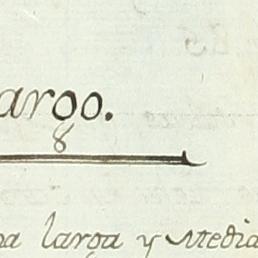 argo.
8
na larga y Media